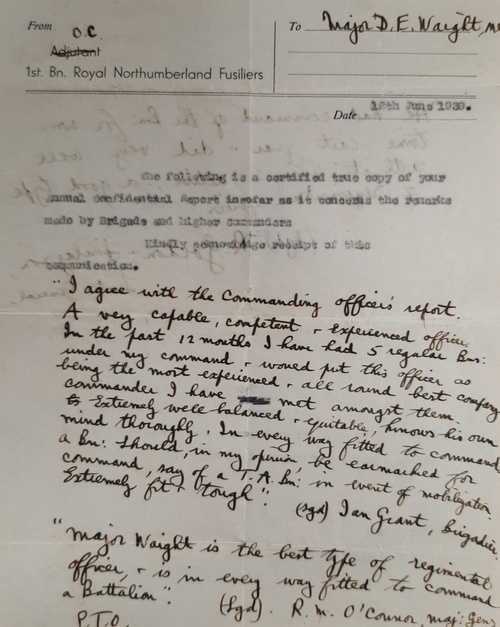 From O.C.
Adjutant
1st. Bn. Royal Northumberland Fusiliers
To Major D. E. Waight, MC
Date 12th June 1939.
The following is a certified true copy of your
Annual Confidential Report insofar as it concerns the remarks
made by Brigade and higher Commanders
Kindly acknowledge receipt of this
communication.
"I agree with the Commanding officer's report.
A very capable, competent & experienced officer.
In the past 12 months I have had 5 regular Bns:
under my command & would put this officer as
being the most experienced & all round best company
commander I have met amongst them.
Extremely well balanced & equitable, knows his own
mind thoroughly. In every way fitted to command
a Bn: Should, in my opinion, be earmarked for
command, say of a T.A. Bn: in event of mobilization.
Extremely fit & tough".
(sgd) Ian Grant, Brigadier.
"Major Waight is the best type of regimental
officer, & is in every way fitted to command
a Battalion".
(Sgd). R. M. O'Connor, Maj: Genl
P.T.O.